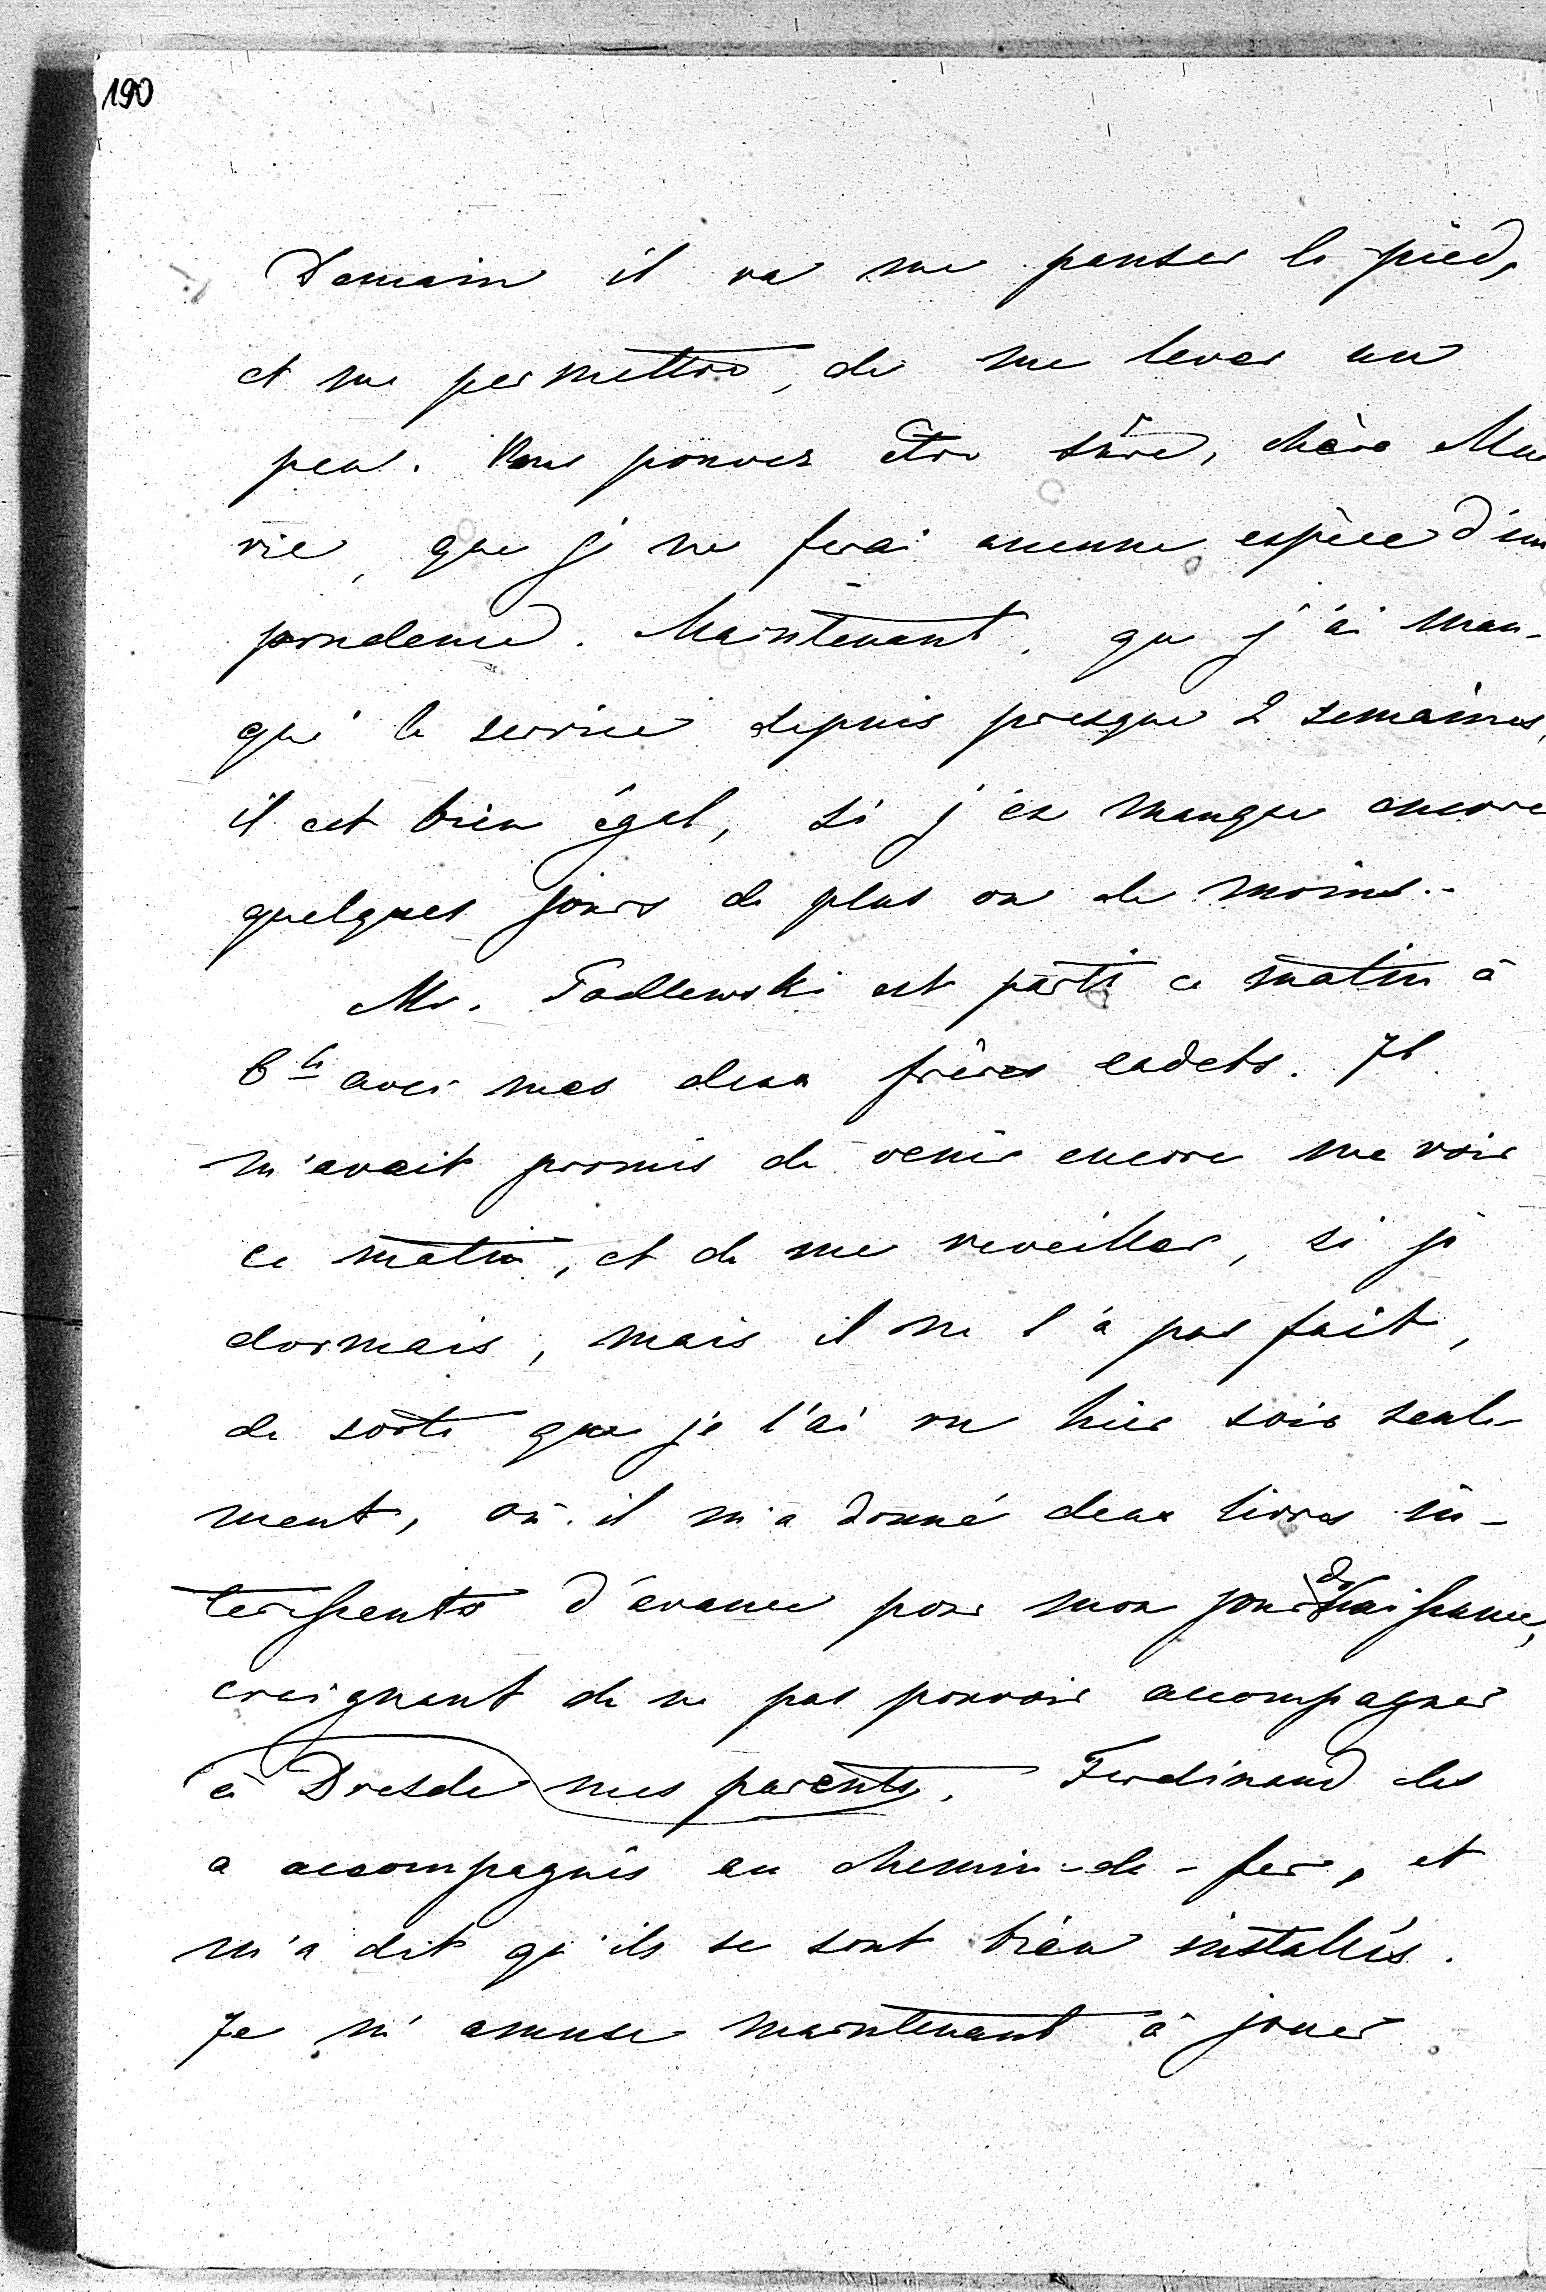 190
Demain il va me panser le pied,
et me permettre, de me lever un
peu. Vous pouvez être sûre, chère Ma
rie, que je ne ferai aucune espèce d'im
prudence. Maintenant, que j'ai man-
qué le service depuis presque 2 semaines,
il est bien égal, si j'en manque encore
quelques jours de plus ou de moins.-
Mr. Podlewski est parti ce matin à
6 h avec mes deux frères cadets. Il
m'avait promis de venir encore me voir
ce matin, et de me reveiller, si je
dormais, mais il ne l'a pas fait,
de sorte que je l'ai vu hier soir seule-
ment, où il m'a donné deux livres in-
teressents d'avance pour mon jour de naissance,
craignant de ne pas pouvoir accompagner
à Dresde mes parents. Ferdinand les
a accompagnés au chemin-de-fer, et
m'a dit qu'ils se sont bien installés.
Je m'amuse maintenant à jouer